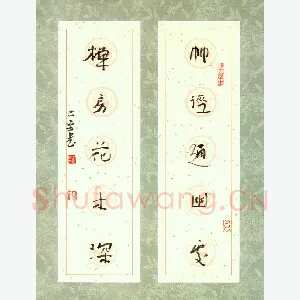 竹徑通幽处
禪房花木深
Shufawang.cn